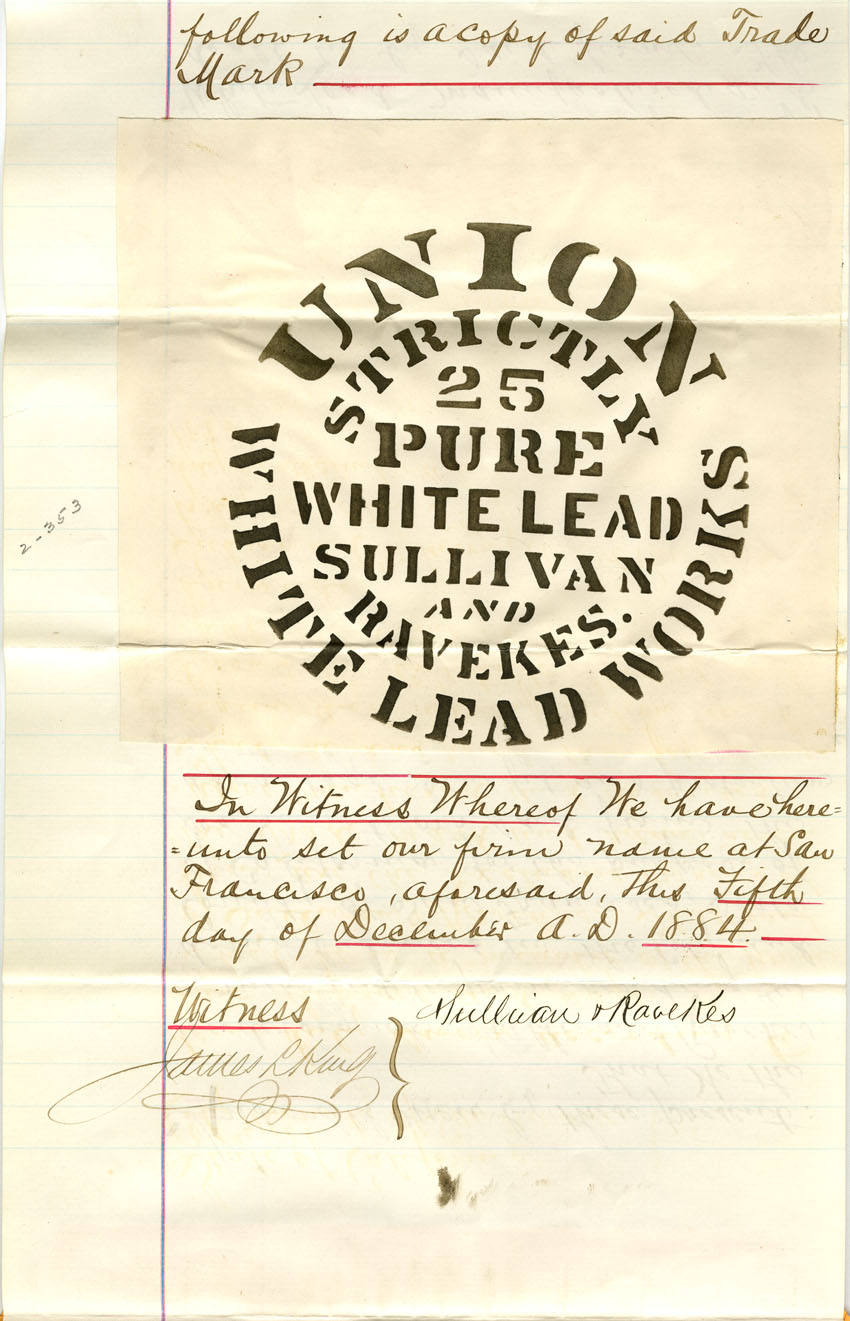 following is a copy of said Trade
Mark
UNION
STRICTLY
25
PURE
WHITE LEAD
SULLIVAN
AND
RAVEKES.
WHITE LEAD WORKS
2-353
In Witness Whereof We have here=
=unto set our firm name at San
Francisco, aforesaid, this Fifth
day of December A.D. 1884.
Witness
Sullivan & Ravekes
James L King